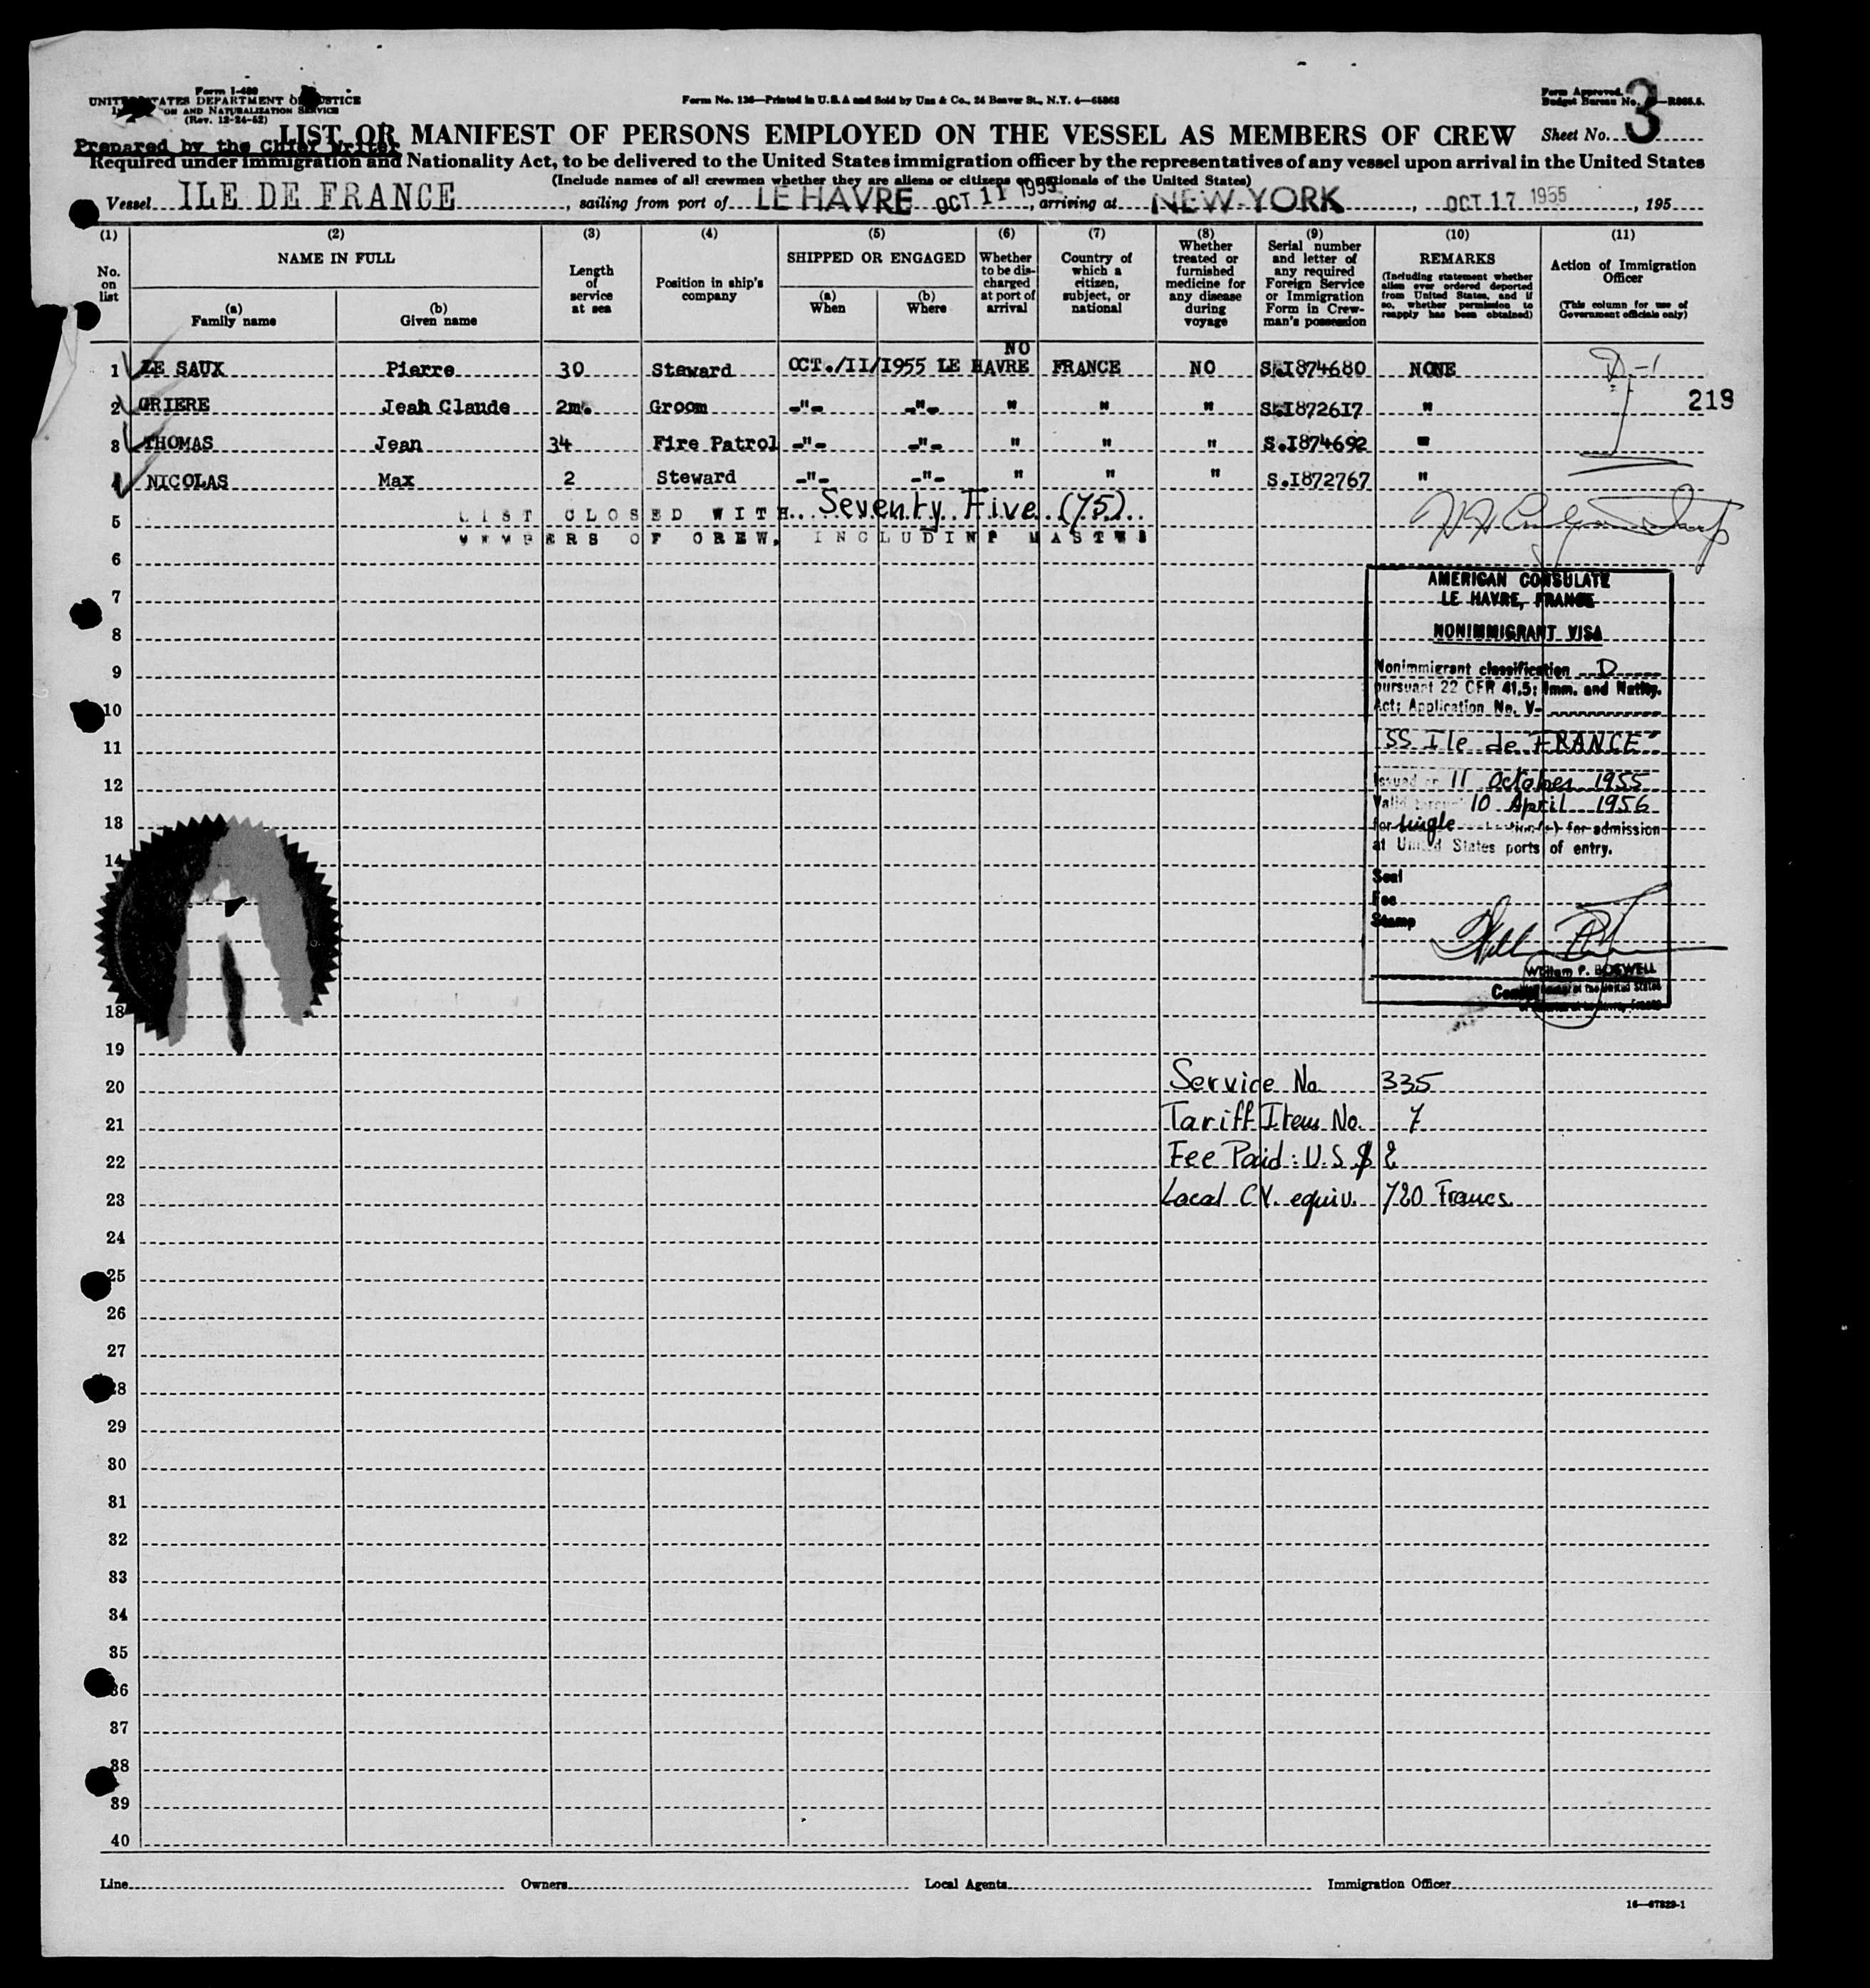 Form I-489
UNITED STATES DEPARTMENT OF JUSTICE
ON AND NATURALIZATION SERVICE
(Rev. 12-24-52)
Form No. 136—Printed in U.S.A and Sold by Unz & Co., 24 Beaver St., N.Y. 4—65868
Form Approved.
Budget Bureau No. —R065.5.
Prepared by the Chief Writer
LIST OR MANIFEST OF PERSONS EMPLOYED ON THE VESSEL AS MEMBERS OF CREW
Sheet No. 3
Required under Immigration and Nationality Act, to be delivered to the United States immigration officer by the representatives of any vessel upon arrival in the United States
(Include names of all crewmen whether they are aliens or citizens or nationals of the United States)
Vessel ILE DE FRANCE, sailing from port of LE HAVRE OCT 11 1955, arriving at NEW-YORK, OCT 17 1955, 195
(1) (2) (3) (4) (5) (6) (7) (8) (9) (10) (11)
No. on list
NAME IN FULL
(a) Family name
(b) Given name
Length of service at sea
Position in ship's company
SHIPPED OR ENGAGED
(a) When
(b) Where
Whether to be discharged at port of arrival
Country of which a citizen, subject, or national
Whether treated or furnished medicine for any disease during voyage
Serial number and letter of any required Foreign Service or Immigration Form in Crewman's possession
REMARKS
(Including statement whether alien ever ordered deported from United States, and if so, whether permission to reapply has been obtained)
Action of Immigration Officer
(This column for use of Government officials only)
NO
1 LE SAUX Pierre 30 Steward OCT./II/1955 LE HAVRE FRANCE NO S.I874680 NONE D-1
2 GRIERE Jean Claude 2m. Groom -"- -"- " " " S.I872617 " 213
3 THOMAS Jean 34 Fire Patrol -"- -"- " " " S.I874692 "
4 NICOLAS Max 2 Steward -"- -"- " " " S.I872767 "
5 LIST CLOSED WITH Seventy Five (75)
MEMBERS OF CREW, INCLUDING MASTER
6
7
8
9
10
11
12
13
14
18
19
20
21
22
23
24
25
26
27
28
29
30
31
32
33
34
35
36
37
38
39
40
AMERICAN CONSULATE
LE HAVRE, FRANCE
NONIMMIGRANT VISA
Nonimmigrant classification D
pursuant 22 CFR 41.5; Imm. and Natlty.
Act; Application No. V-
"SS Ile de FRANCE"
Issued on 11 October 1955
Valid through 10 April 1956
for single application(s) for admission
at United States ports of entry.
Seal
Fee
Stamp
William P. BOSWELL
Consul of the United States
Service No 335
Tariff Item No. 7
Fee Paid: U.S $ 2
Local CY. equiv. 720 Francs
Line
Owners
Local Agents
Immigration Officer
16—67829-1